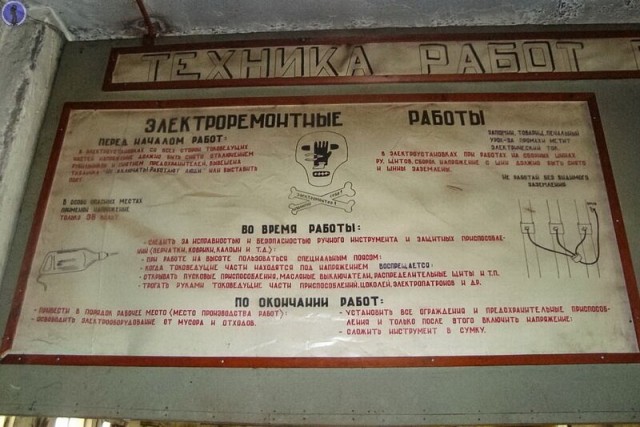 ТЕХНИКА РАБОТ
ЭЛЕКТРОРЕМОНТНЫЕ РАБОТЫ
ПЕРЕД НАЧАЛОМ РАБОТ:
В ЭЛЕКТРОУСТАНОВКАХ СО ВСЕХ СТОРОН ТОКОВЕДУЩИХ
ЧАСТЕЙ НАПРЯЖЕНИЕ ДОЛЖНО БЫТЬ СНЯТО ОТКЛЮЧЕНИЕМ
РУБИЛЬНИКОВ И СНЯТИЕМ ПРЕДОХРАНИТЕЛЕЙ,
"НЕ ВКЛЮЧАТЬ! РАБОТАЮТ ЛЮДИ" ИЛИ ВЫСТАВИТЬ
ПОСТ
ЗАПОМНИ, ТОВАРИЩ, ПЕЧАЛЬНЫЙ
УРОК-ВО ПРОМАХИ МСТИТ
ЭЛЕКТРИЧЕСКИЙ ТОК.
В ЭЛЕКТРОУСТАНОВКАХ ПРИ РАБОТАХ НА СБОРНЫХ ШИНАХ
РУ, ЩИТОВ, СБОРОК НАПРЯЖЕНИЕ С ШИН ДОЛЖНО БЫТЬ СНЯТО
И ШИНЫ ЗАЗЕМЛЕНЫ.
НЕ РАБОТАЙ БЕЗ ВИДИМОГО
ЗАЗЕМЛЕНИЯ
В ОСОБО ОПАСНЫХ МЕСТАХ
ПРИМЕНЯЙ НАПРЯЖЕНИЕ
ТОЛЬКО 36 ВОЛЬТ
ВО ВРЕМЯ РАБОТЫ:
- СЛЕДИТЬ ЗА ИСПРАВНОСТЬЮ И БЕЗОПАСНОСТЬЮ РУЧНОГО ИНСТРУМЕНТА И ЗАЩИТНЫХ ПРИСПОСОБЛЕ-
НИЙ (ПЕРЧАТКИ, КОВРИКИ, КАЛОШИ И Т.Д.);
- ПРИ РАБОТЕ НА ВЫСОТЕ ПОЛЬЗОВАТЬСЯ СПЕЦИАЛЬНЫМ ПОЯСОМ;
- КОГДА ТОКОВЕДУЩИЕ ЧАСТИ НАХОДЯТСЯ ПОД НАПРЯЖЕНИЕМ ВОСПРЕЩАЕТСЯ:
- ОТКРЫВАТЬ ПУСКОВЫЕ ПРИСПОСОБЛЕНИЯ, МАСЛЯНЫЕ ВЫКЛЮЧАТЕЛИ, РАСПРЕДЕЛИТЕЛЬНЫЕ ЩИТЫ И Т.П.
- ТРОГАТЬ РУКАМИ ТОКОВЕДУЩИЕ ЧАСТИ ПРИСПОСОБЛЕНИЙ, ЦОКОЛЕЙ, ЭЛЕКТРОПАТРОНОВ И ДР.
ПО ОКОНЧАНИИ РАБОТ:
- ПРИВЕСТИ В ПОРЯДОК РАБОЧЕЕ МЕСТО (МЕСТО ПРОИЗВОДСТВА РАБОТ);
- ОСВОБОДИТЬ ЭЛЕКТРООБОРУДОВАНИЕ ОТ МУСОРА И ОТХОДОВ.
- УСТАНОВИТЬ ВСЕ ОГРАЖДЕНИЯ И ПРЕДОХРАНИТЕЛЬНЫЕ ПРИСПОСОБ-
ЛЕНИЯ И ТОЛЬКО ПОСЛЕ ЭТОГО ВКЛЮЧИТЬ НАПРЯЖЕНИЕ;
- СЛОЖИТЬ ИНСТРУМЕНТ В СУМКУ.